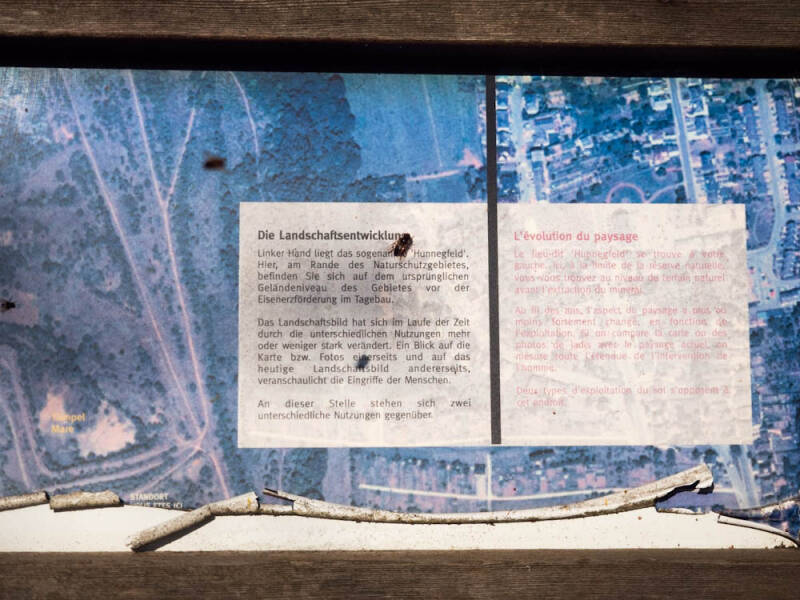 Die Landschaftsentwicklung
Linker Hand liegt das sogenannte 'Hunnegfeld'.
Hier, am Rande des Naturschutzgebietes,
befinden Sie sich auf dem ursprünglichen
Geländeniveau des Gebietes vor der
Eisenerzförderung im Tagebau.
Das Landschaftsbild hat sich im Laufe der Zeit
durch die unterschiedlichen Nutzungen mehr
oder weniger stark verändert. Ein Blick auf die
Karte bzw. Fotos einerseits und auf das
heutige Landschaftsbild andererseits,
veranschaulicht die Eingriffe der Menschen.
An dieser Stelle stehen sich zwei
unterschiedliche Nutzungen gegenüber.
L'évolution du paysage
Le lieu-dit 'Hunnegfeld' se trouve à votre
gauche. Ici, à la limite de la réserve naturelle,
vous vous trouvez au niveau de terrain naturel
avant l'extraction du minerai.
Au fil des ans, l'aspect du paysage a plus ou
moins fortement changé, en fonction de
l'exploitation. Si on compare la carte ou des
photos de jadis avec le paysage actuel, on
mesure toute l'étendue de l'intervention de
l'homme.
Deux types d'exploitation du sol s'opposent à
cet endroit.
Tümpel
Mare
STANDORT
VOUS ETES ICI